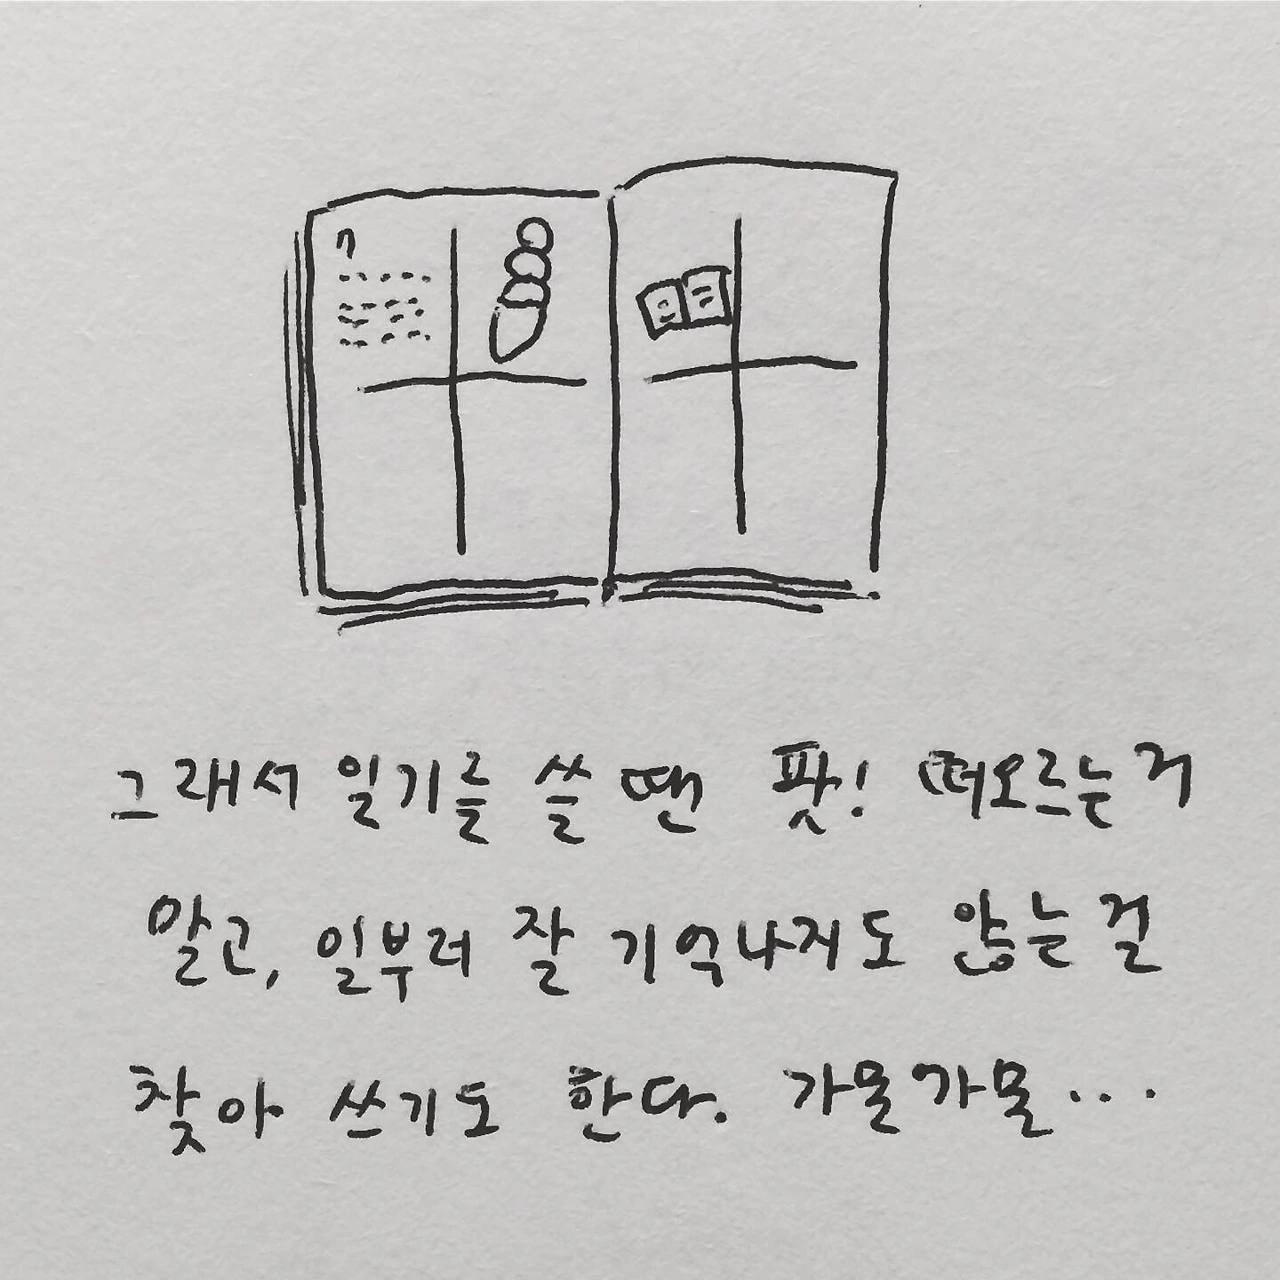 7
그래서 일기를 쓸 땐 팟! 떠오르는 거
말고, 일부러 잘 기억나지도 않는 걸
찾아 쓰기도 한다. 가물가물...